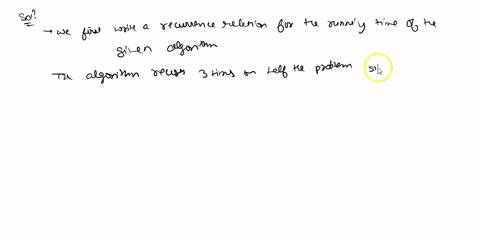 Sol:
→ we first write a recurrence relation for the runnig time of the
given algorithm
The algorithm recurs 3 times on half the problem si